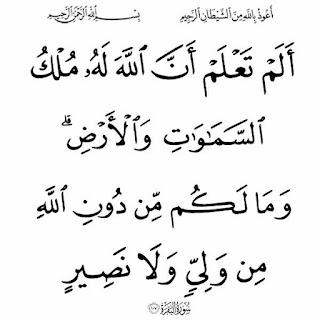 أعوذ بالله من الشيطان الرجيم بسم الله الرحمن الرحيم
أَلَمْ تَعْلَمْ أَنَّ ٱللَّهَ لَهُۥ مُلْكُ
ٱلسَّمَـٰوَٰتِ وَٱلْأَرْضِ ۗ
وَمَا لَكُم مِّن دُونِ ٱللَّهِ
مِن وَلِىٍّ وَلَا نَصِيرٍ
سورة البقرة ١٠٧